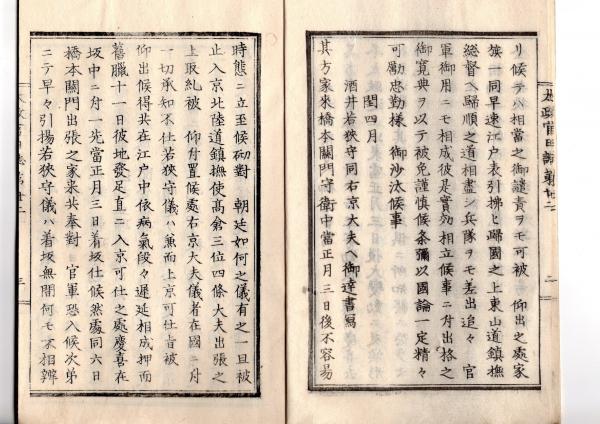 リ候テハ相當之御譴責ヲモ可被　仰出之處家
族一同早速江戸表引拂ヒ歸國之上東山道鎮撫
總督ヘ歸順之道相盡シ兵隊ヲモ差出追々　官
軍御用ニモ相成彼是實効相立候事ニ付出格之
御寛典ヲ以テ被免謹慎候条彌以國論一定精々
可勵忠勤様　御沙汰候事
閏四月
酒井若狭守同右京大夫ヘ御達書寫
其方家來橋本關門守衛中當正月三日後不容易
太政官日誌第廿二
二
時態ニ立至候砌對　朝廷如何之儀有之一旦被
止入京北陸道鎮撫使高倉三位四條大夫出張之
上取糺被　仰付置候處右京大夫儀者在國ニ付
一切承知不仕若狭守儀ハ兼而上京可仕旨被
仰出候得共在江戸中依病氣段々遲延相成押而
舊臘十一日彼地發足直ニ入京可仕之處慶喜在
坂中ニ付一先當正月三日着坂仕候然處同六日
橋本關門出張之家來共奉對　官軍恐入候次第
ニテ早々引揚若狭守儀ハ着坂無間何モ不相辨
三